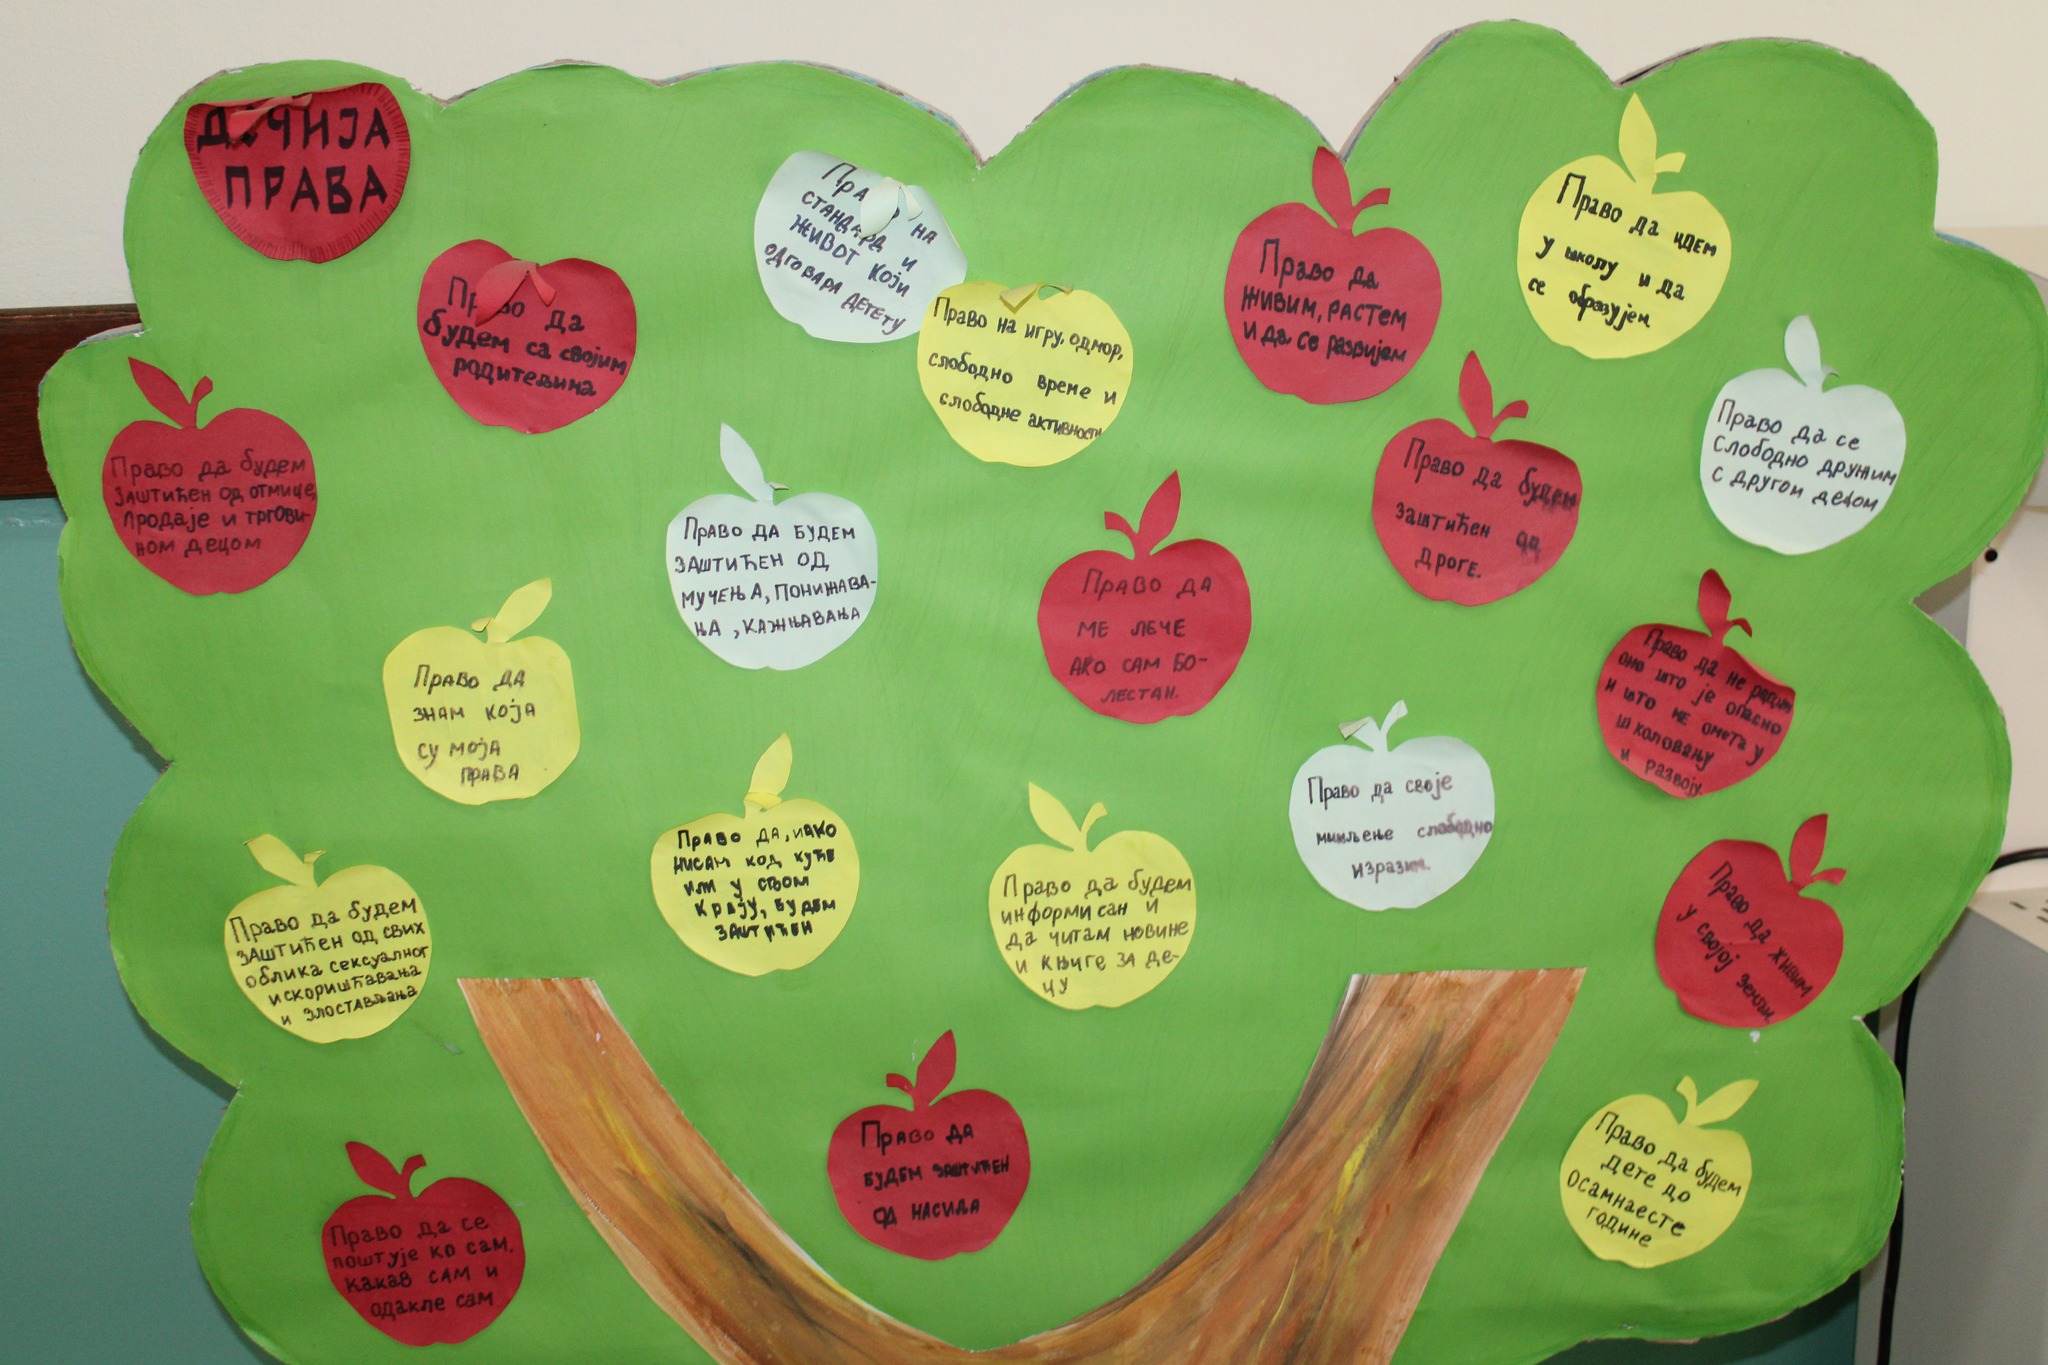 ДЕЧИЈА
ПРАВА
Право на
СТАНДАРД И
ЖИВОТ КОЈИ
ОДГОВАРА ДЕТЕТУ
Право да
будем са својим
родитељима
Право на игру, одмор,
слободно време и
слободне активности
Право да
живим, растем
и да се развијем
Право да идем
у школу и да
се образујем
Право да се
слободно дружим
с другом децом
Право да будем
заштићен од отмице,
продаје и тргови-
ном децом
Право да будем
заштићен од
дроге.
ПРАВО ДА БУДЕМ
ЗАШТИЋЕН ОД
МУЧЕЊА, ПОНИЖАВА-
ЊА, КАЖЊАВАЊА
ПРАВО ДА
МЕ ЛЕЧЕ
АКО САМ БО-
ЛЕСТАН.
Право да
знам која
су моја
права
Право да не радим
оно што је опасно
и што не омета у
школовању
и развоју.
Право да своје
мишљење слободно
изразим.
Право да, иако
нисам код куће
или у свом
крају, будем
заштићен
Право да будем
информисан и
да читам новине
и књиге за де-
цу
Право да живим
у својој
земљи.
Право да будем
заштићен од свих
облика сексуалног
искоришћавања
и злостављања
Право да
будем заштићен
од насиља
Право да будем
дете до
осамнаесте
године
Право да се
поштује ко сам,
какав сам и
одакле сам